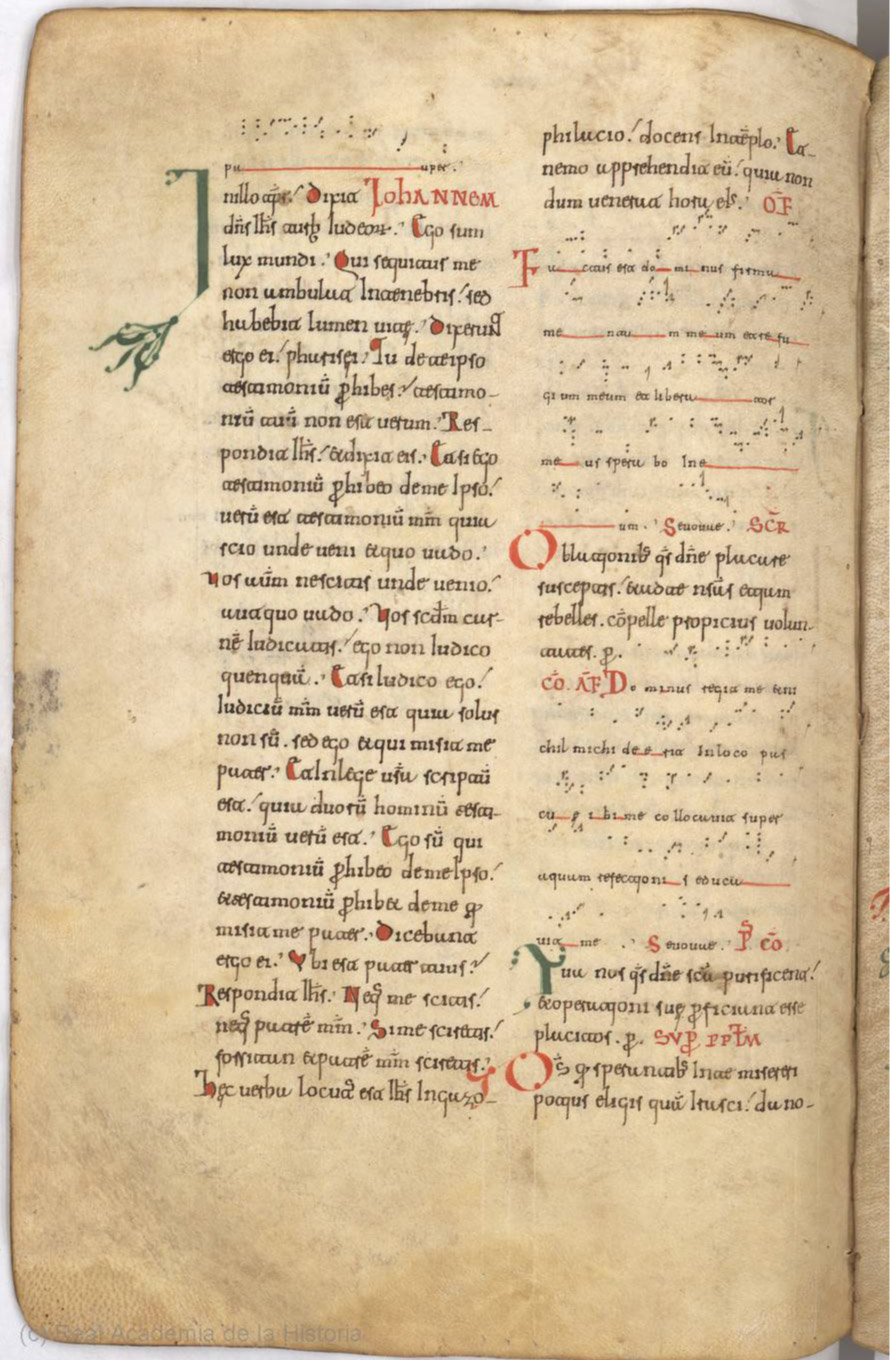 pu uper.
In illo tp̄r. Dixit Iohannem
dn̄s ih̄s turb iudeor. Ego sum
lux mundi. Qui sequitur me
non ambulat in tenebris. sed
habebit lumen uitę. Dixerunt
ergo ei. pharisęi. Tu de te ipso
testimoniū phibes. testimo-
niū tuū non est uerum. Res-
pondit ih̄s. et dixit eis. Et si ego
testimoniū phibeo de me ipso.
uerū est testimoniū mm̄ quia
scio unde ueni et quo uado.
Uos aūm nescitis unde uenio.
aut quo uado. Uos scdm car-
nē iudicatis. ego non iudico
quenquā. Et si iudico ego.
iudiciū mm̄ uerū est quia solus
non sū. sed ego et qui misit me
pater. Et in lege urā scriptū
est. quia duorū hominū testi-
moniū uerū est. Ego sū qui
testimoniū phibeo de me ipso.
et testimoniū phibet de me q
misit me pater. Dicebant
ergo ei. Ubi est pater tuus.
Respondit ih̄s. Neq me scitis.
neq patrē mm̄. Si me sciretis.
forsitan et patrē mm̄ sciretis.
Hęc uerba locut est ih̄s in gazo-
philacio. docens in tēplo. Et
nemo apprehendit eū. quia non
dum uenerat hora eis. OF
Factus est do mi nus firma
me na m me um et re fu
gi um meum et libera tor
me us spera bo in e
um. Seuouae. SCR
Oblationib qs dn̄e placare
susceptis. et ad te nrās etiam
rebelles. cōpelle propicius uolun-
tates. p.
CŌ. AF. Do minus regit me et ni
chil michi de e rit In loco pas
cu e i bi me collocauit super
aquam refectioni s educa
uit me. Seuouae. P̄ CŌ
Tua nos qs dn̄e scā purificent.
et operationi suę pficiant esse
placitos. p. SUP PPLM
Ds q sperantib in te misereri
potius eligis quā irasci. da no-
(c) Real Academia de la Historia